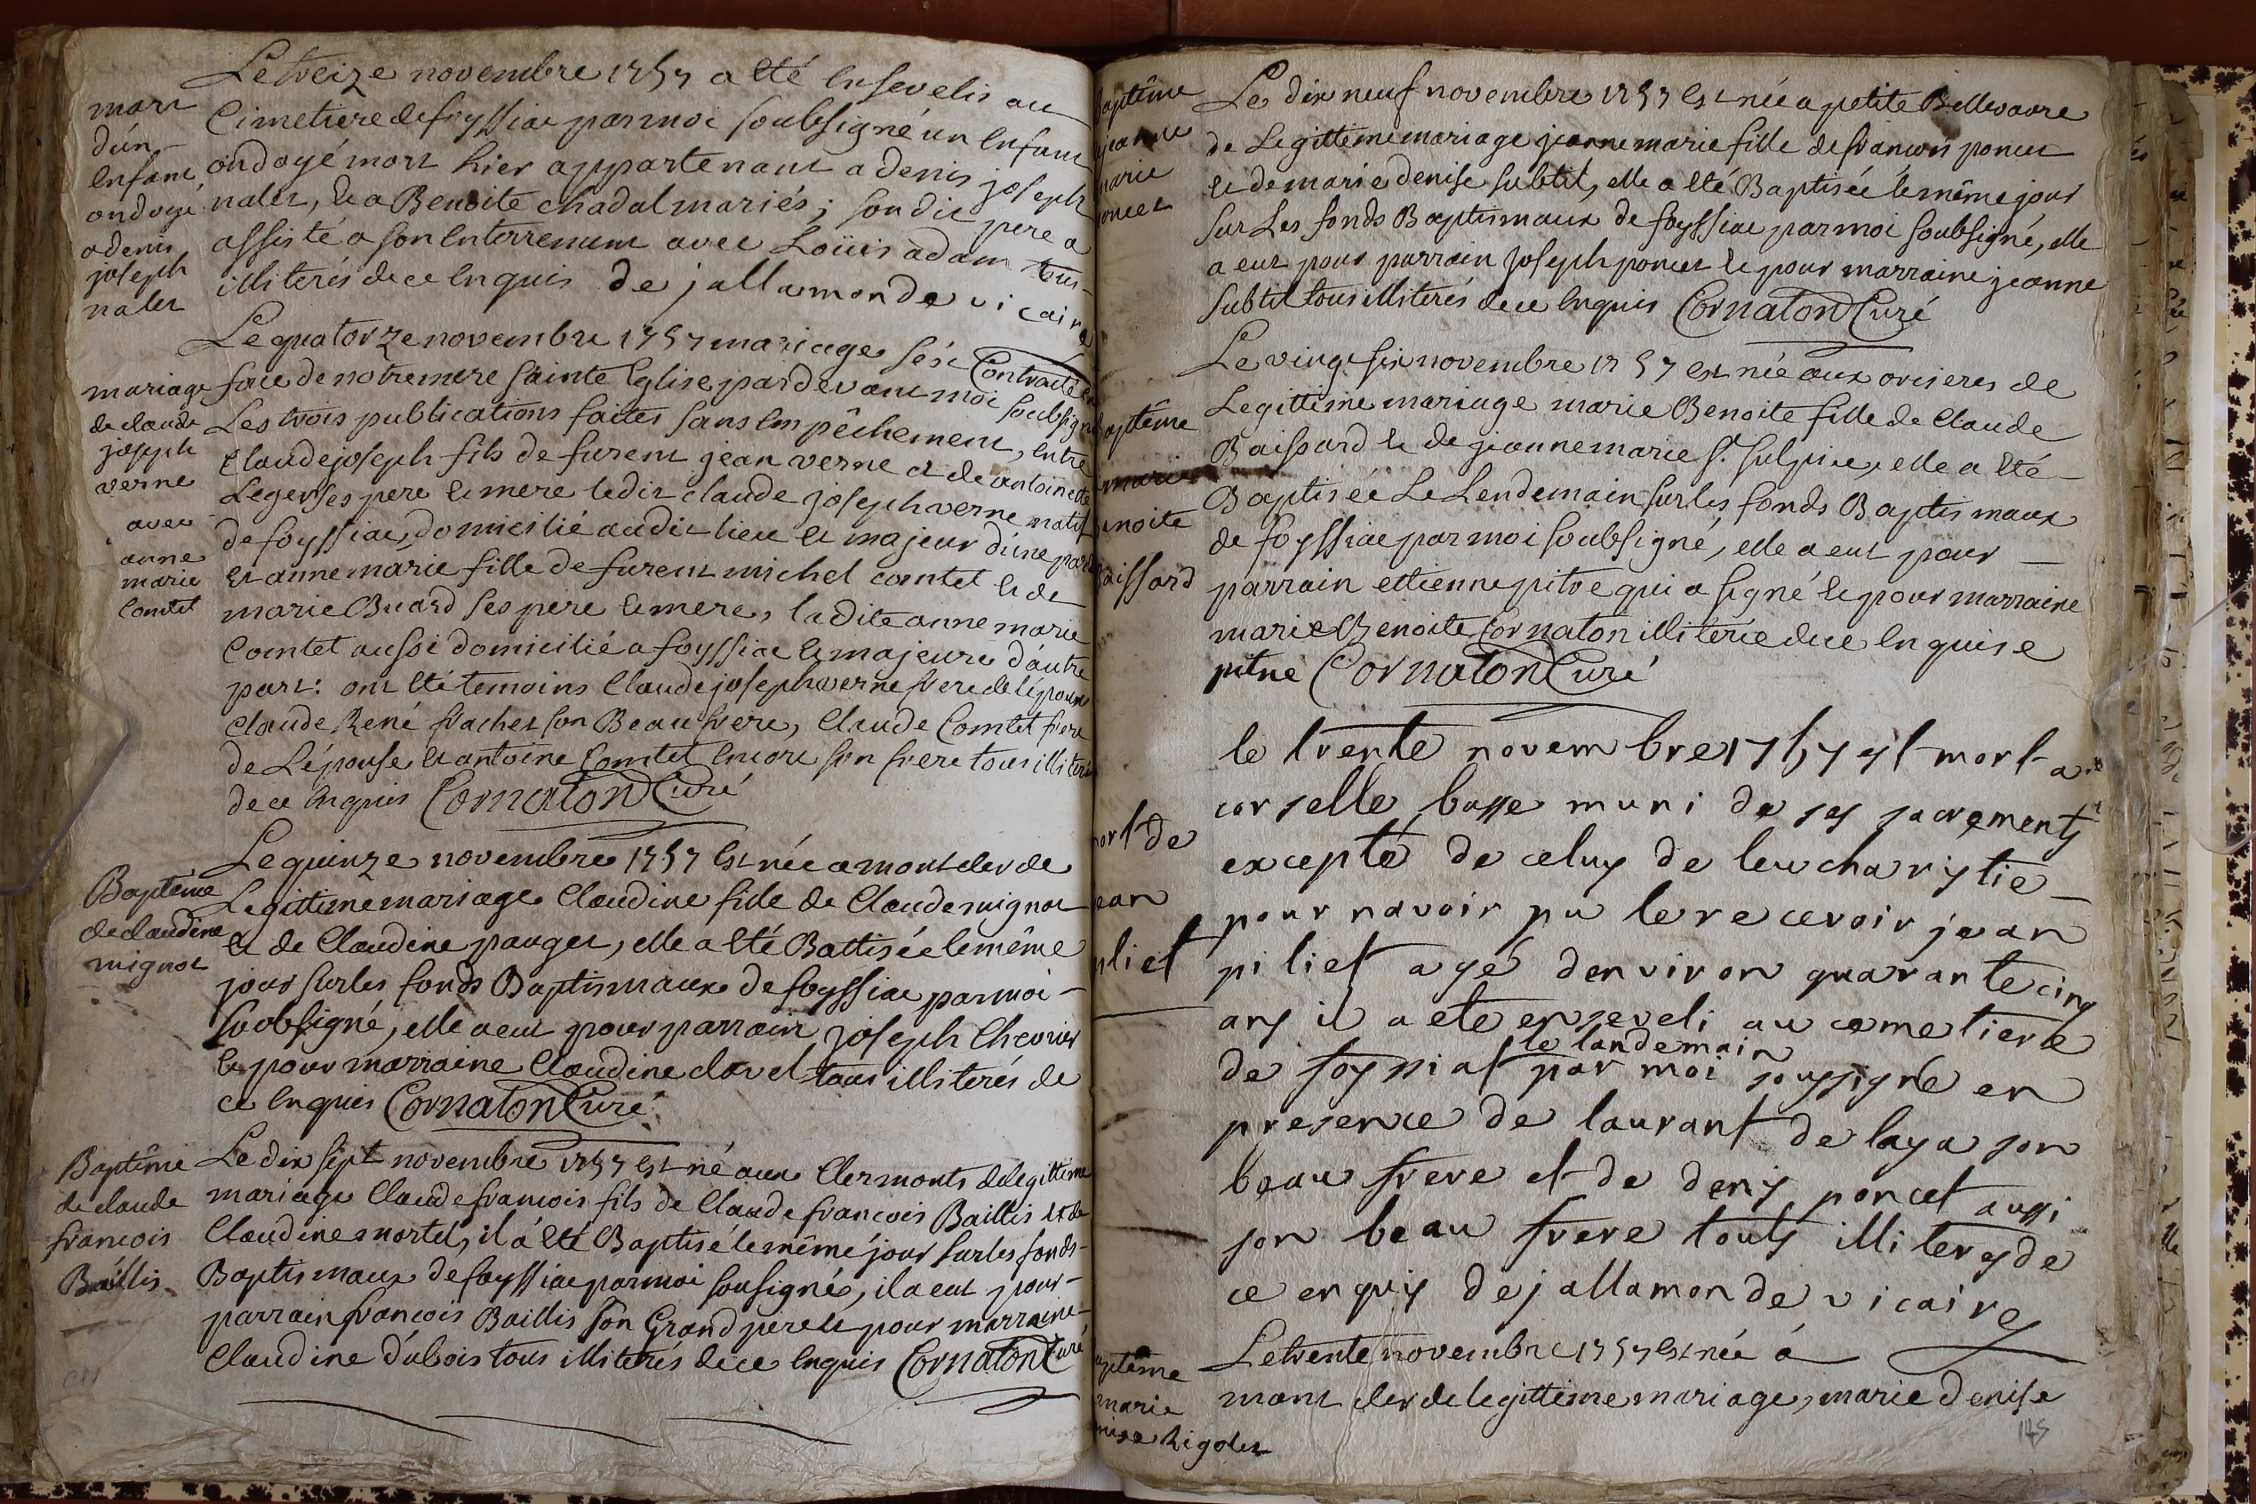 Le treize novembre 1757 a eté ensevelis au
Cimetiere de foyssiac par moi soubsigné un enfant
ondoyé mort hier appartenant a denis joseph
nalet, et a Benoite chadal mariés; son dit pere a
assisté a son enterrement avec Loüis adam tous
illiterés de ce enquis de jallamonde vicaire
mort
d'un
enfant
ondoyé
a denis
joseph
nalet
Le quatorze novembre 1757 mariage s'est Contracté en
face de notre mere sainte Eglise pardevant moi soubsigné
Les trois publications faites sans empêchement, entre
Claude joseph fils de furent jean verne et de antoinette
Leger ses pere et mere ledit claude joseph verne natif
de foyssiac domicilié audit lieu et majeur d'une part
et anne marie fille de furent michel comtet et de
marie Buard ses pere et mere, ladite anne marie
Comtet aussi domicilié a foyssiac et majeure d'autre
part: ont eté temoins Claude joseph verne frere de l'époux
claude René frachet son Beau frere, Claude Comtet frere
de L'épouse et antoine Comtet encore son frere tous illiterés
de ce enquis Cornaton Curé
mariage
de claude
joseph
verne
avec
anne
marie
Comtet
Le quinze novembre 1757 est née a montcler de
Legittime mariage Claudine fille de Claude mignot
et de Claudine pauget, elle a eté Battisée le même
jour sur les fonds Baptismaux de foyssiac par moi
soubsigné, elle a eut pour parrain joseph Chevrier
et pour marraine Claudine clavel tous illiterés de
ce enquis Cornaton Curé
Baptême
de claudine
mignot
Le dix sept novembre 1757 est né aux Clermonts de legittime
mariage Claude francois fils de Claude francois Baillis et de
Claudine mortel, il a eté Baptisé le même jour sur les fonds
Baptismaux de foyssiac par moi sousigné, il a eut pour
parrain francois Baillis son Grand pere et pour marraine
Claudine dubois tous illiterés de ce enquis Cornaton Curé
Baptême
de claude
francois
Baillis
Le dix neuf novembre 1757 est née a petite Bellevavre
de Legittime mariage jeanne marie fille de francois poncet
et de marie denise subtil, elle a eté Baptisée le même jour
sur Les fonds Baptismaux de foyssiac par moi soubsigné, elle
a eut pour parrain joseph poncet et pour marraine jeanne
subtil tous illiterés de ce enquis Cornaton Curé
aptême
jeanne
arie
oncet
Le vingt six novembre 1757 est née aux orcieres de
Legittime mariage marie Benoite fille de Claude
Baissard et de jeanne marie St. sulpice, elle a eté
Baptisée Le Lendemain sur les fonds Baptismaux
de foyssiac par moi soubsigné, elle a eut pour
parrain ettienne pitre qui a signé et pour marraine
marie Benoite Cornaton illiterée de ce enquise
pitre Cornaton Curé
aptême
marie
enoite
aissard
le trente novembre 1757 est mort a
corselle basse muni de ses sacrements
excepté de celuy de leucharistie
pour navoir pu le recevoir jean
piliet agé denviron quarante cinq
ans il a ete enseveli au cemetierre
le landemain
de foyssiat par moi soussigné en
presence de laurant de laya son
beau frere et de denis poncet aussi
son beau frere touts illiterés de
ce enquis dejallamonde vicaire
ort de
ean
pliet
Le trente novembre 1757 est née á
mont cler de legittime mariage, marie denise
aptême
marie
nise Rigolet
145